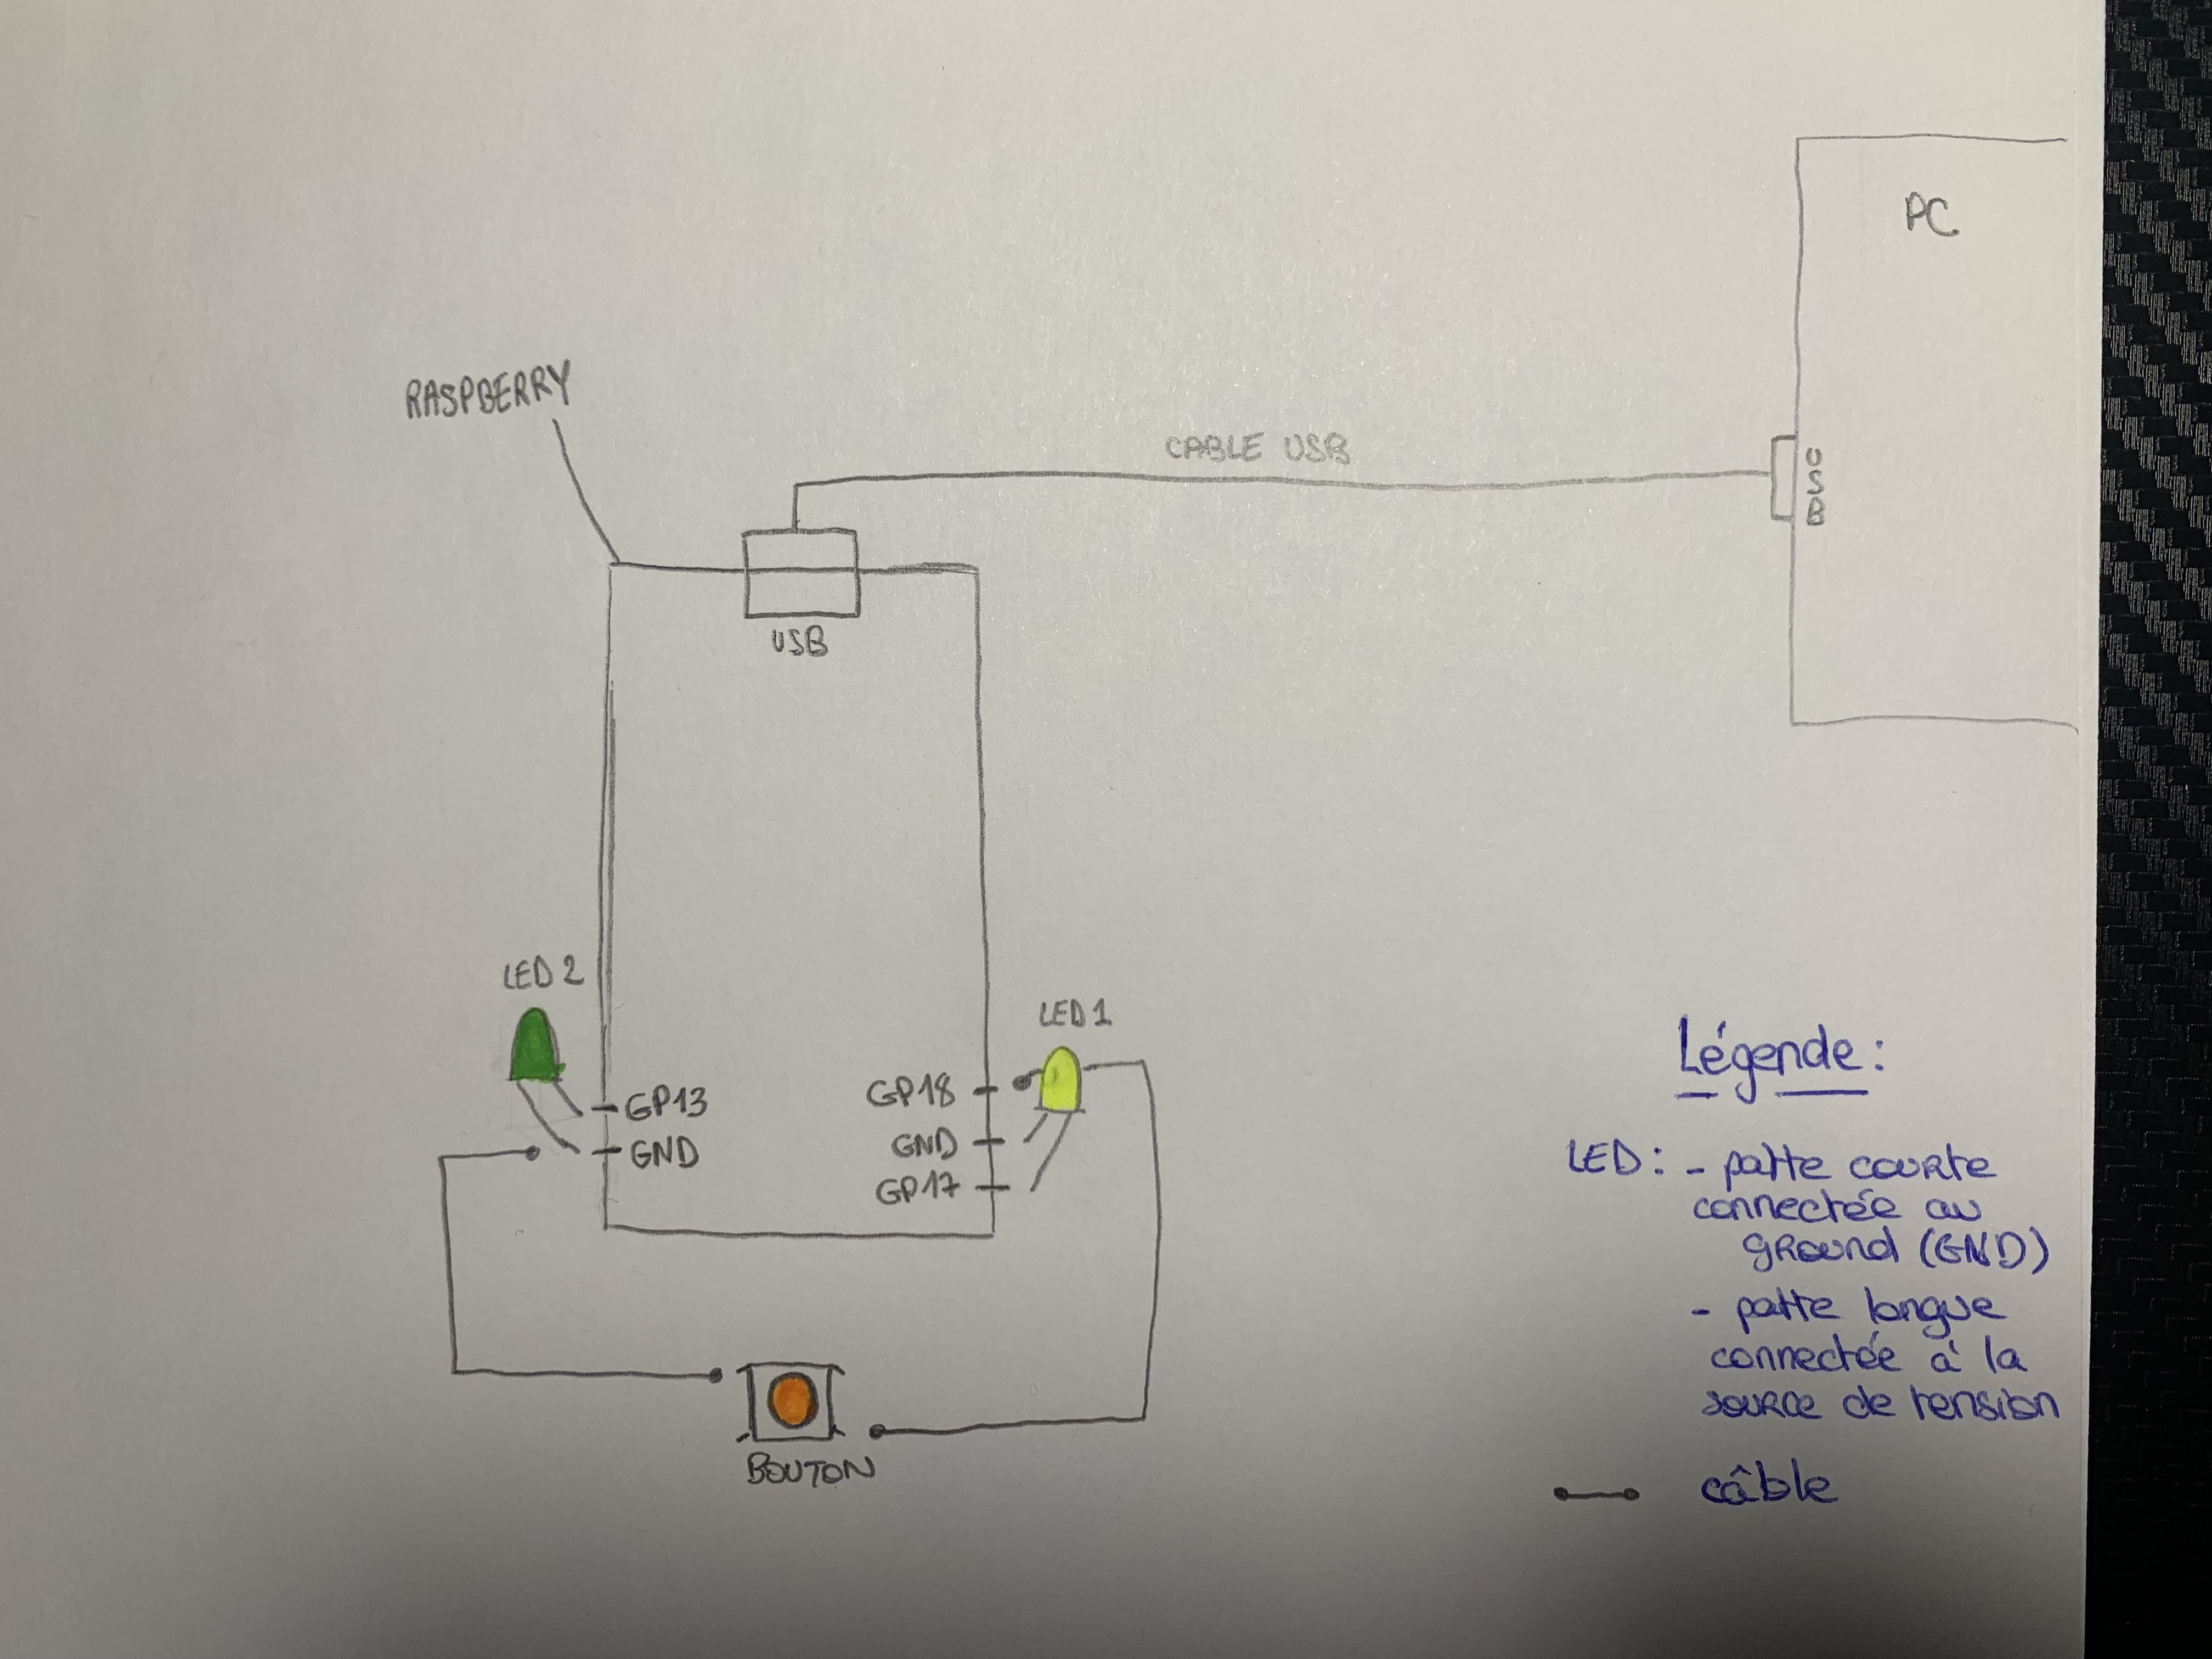 PC
RASPBERRY
CABLE USB
USB
USB
LED 2
LED 1
GP13
GND
GP18
GND
GP17
BOUTON
Légende :
LED : - patte courte
connectée au
ground (GND)
- patte longue
connectée à la
source de tension
câble